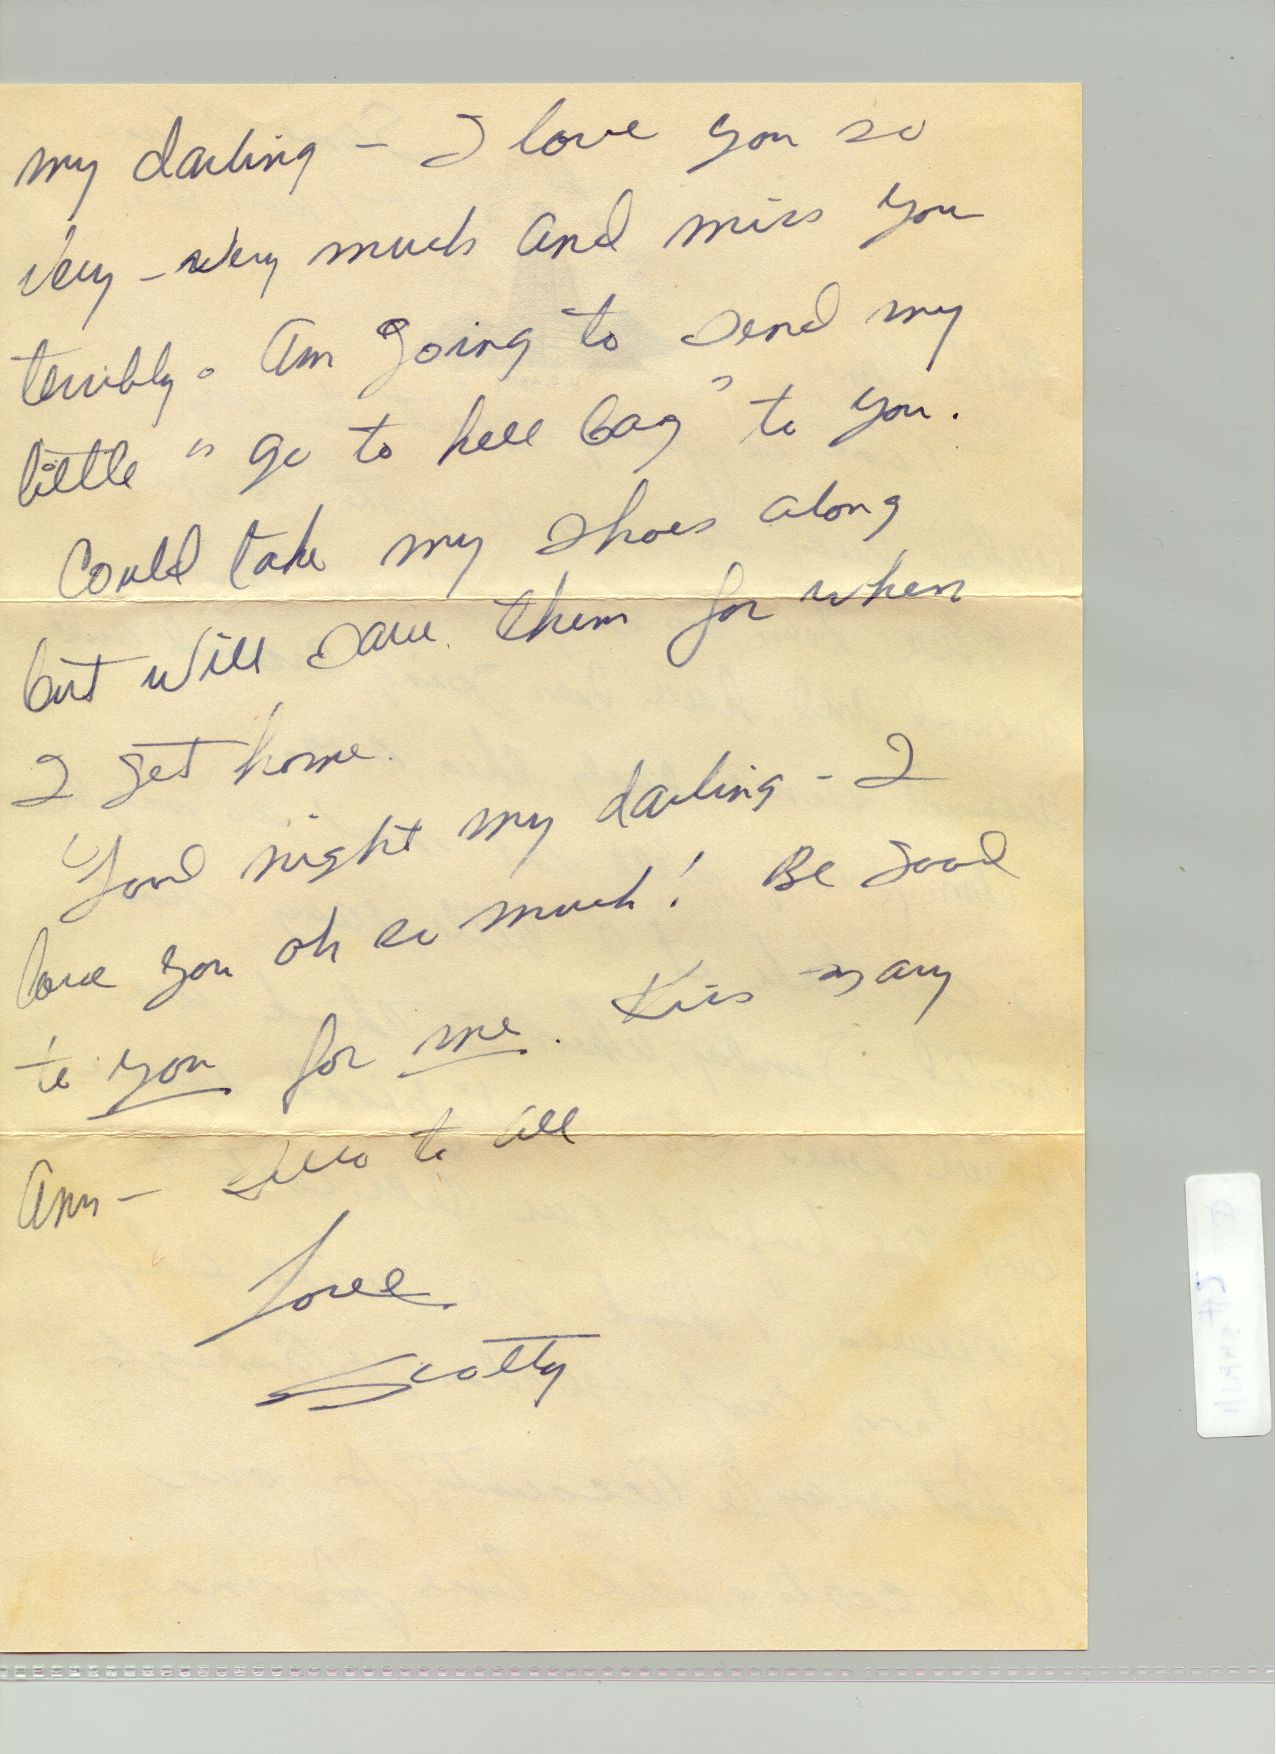 my darling - I love you so
very - very much and miss you
terribly. Am going to send my
little "go to hell bag" to you.
Could take my shoes along
but will save them for when
I get home.
Good night my darling - I
love you oh so much! Be good
to you for me. Kiss Mary
Ann - Hello to all
Love
Scotty